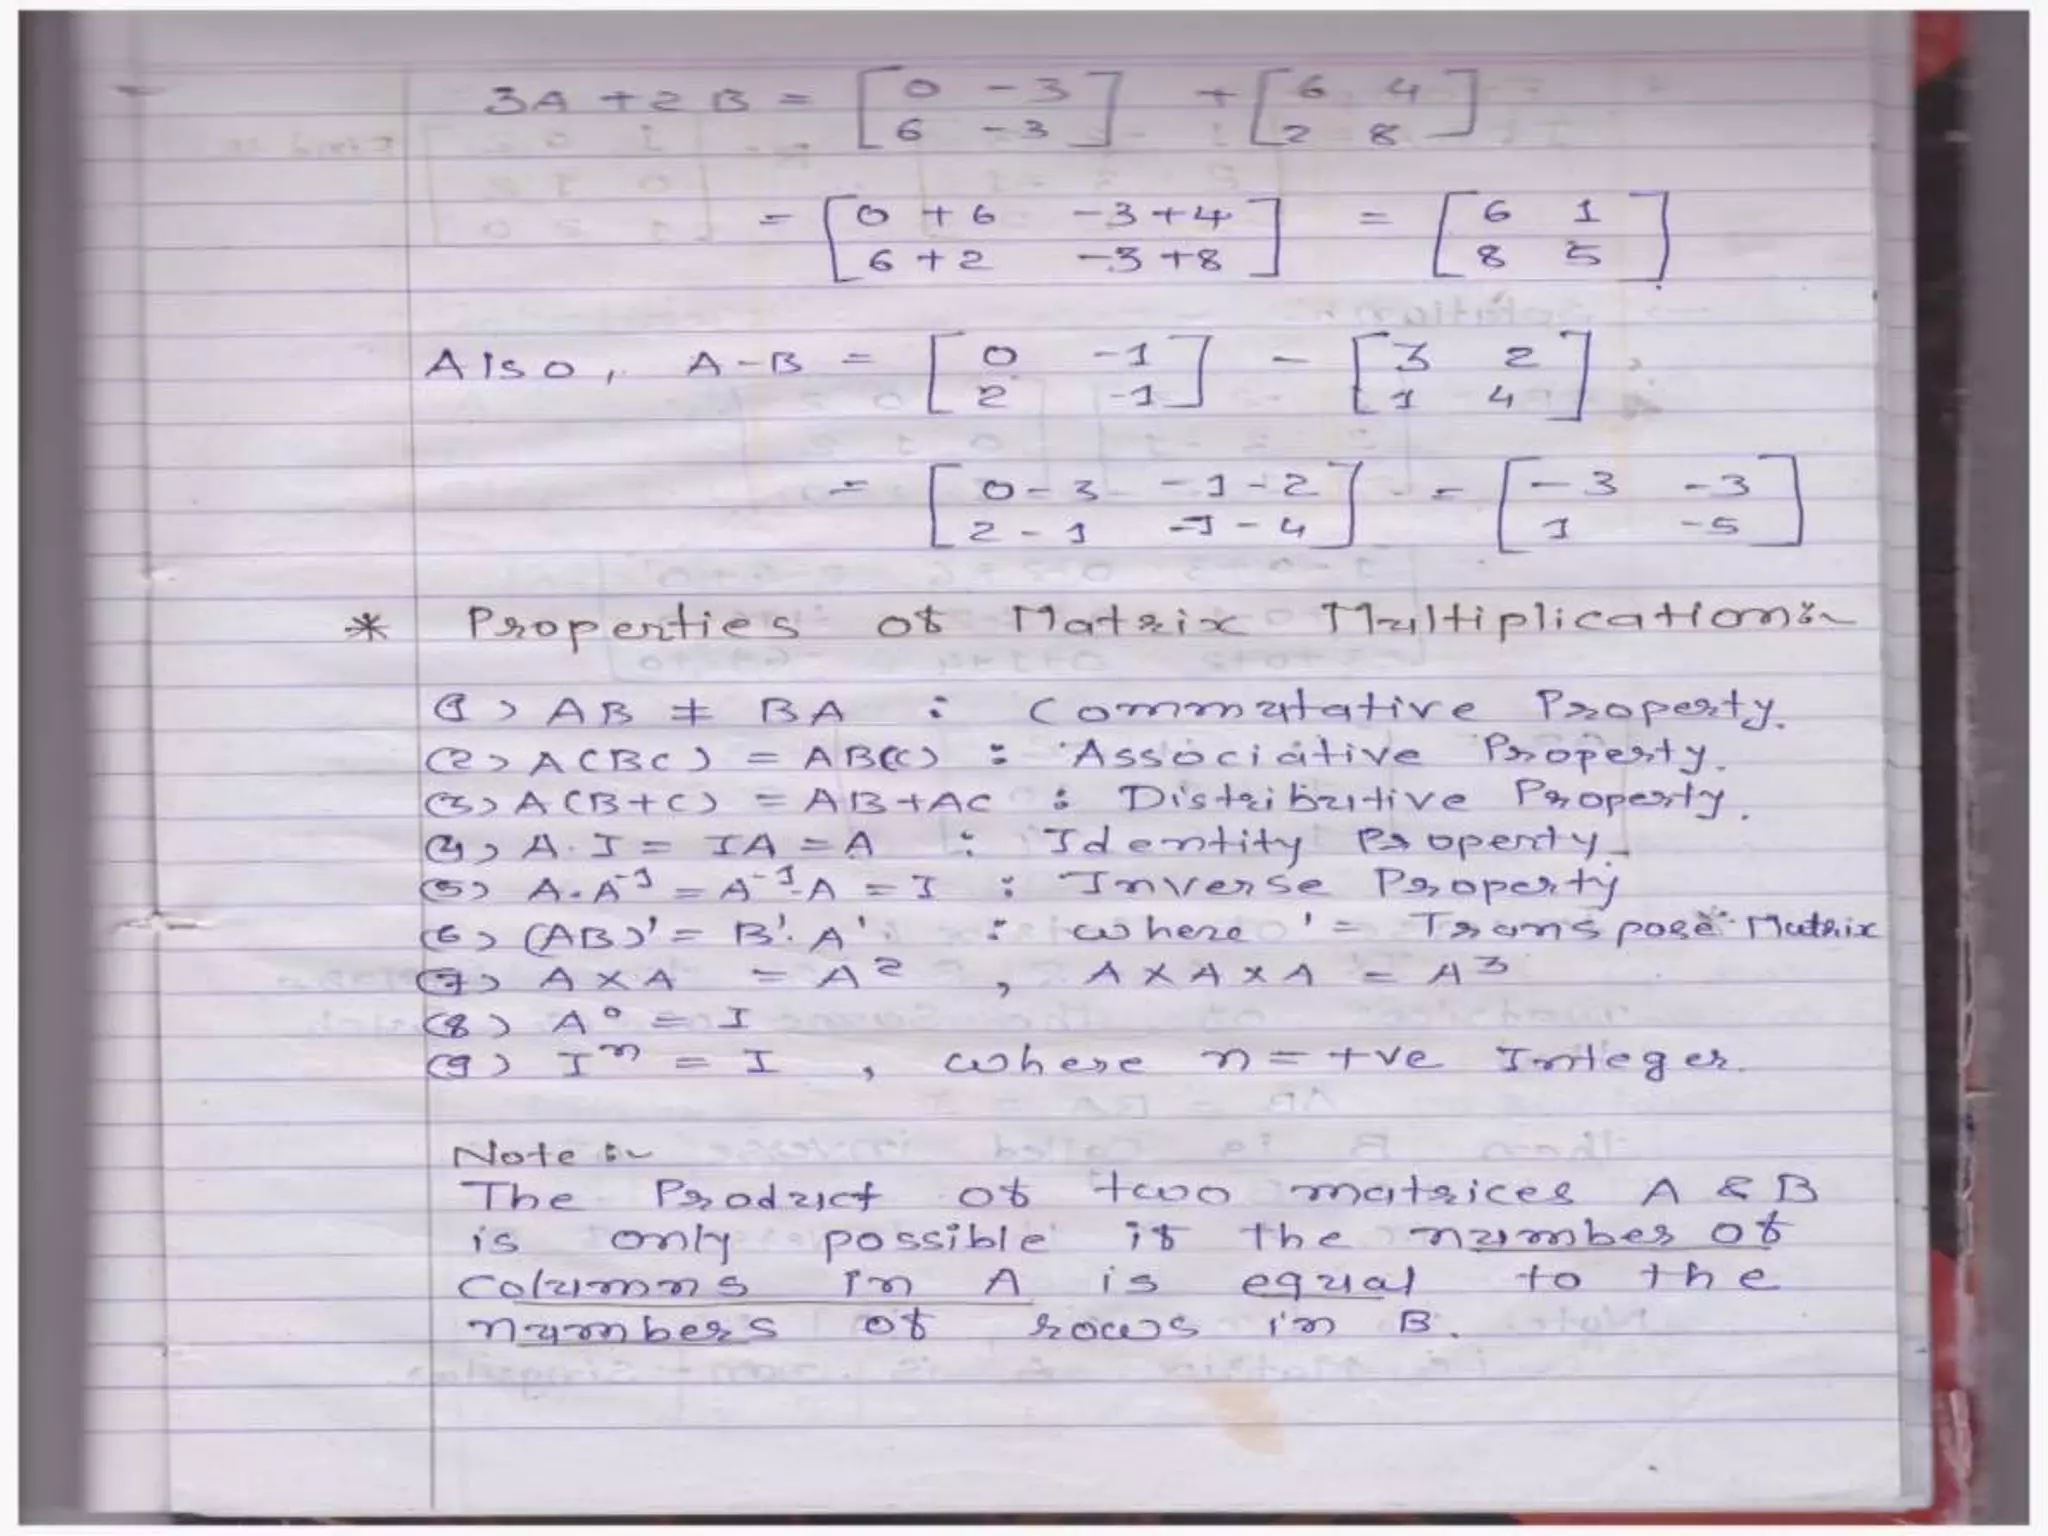 3A + 2B = [ 0 -3 ] + [ 6 4 ]
[ 6 -3 ] [ 2 8 ]
= [ 0+6 -3+4 ] = [ 6 1 ]
[ 6+2 -3+8 ] [ 8 5 ]
Also, A-B = [ 0 -1 ] - [ 3 2 ]
[ 2 -1 ] [ 1 4 ]
= [ 0-3 -1-2 ] = [ -3 -3 ]
[ 2-1 -1-4 ] [ 1 -5 ]
* Properties of Matrix Multiplication:-
(1) AB ≠ BA : Commutative Property.
(2) A(BC) = AB(C) : Associative Property.
(3) A(B+C) = AB+AC : Distributive Property.
(4) A.I = IA = A : Identity Property.
(5) A.A⁻¹ = A⁻¹.A = I : Inverse Property
(6) (AB)' = B'.A' : where ' = Transpose Matrix
(7) A×A = A² , A×A×A = A³
(8) A⁰ = I
(9) Iⁿ = I , where n = +ve Integer.
Note:-
The Product of two matrices A & B
is only possible if the number of
Columns in A is equal to the
numbers of rows in B.